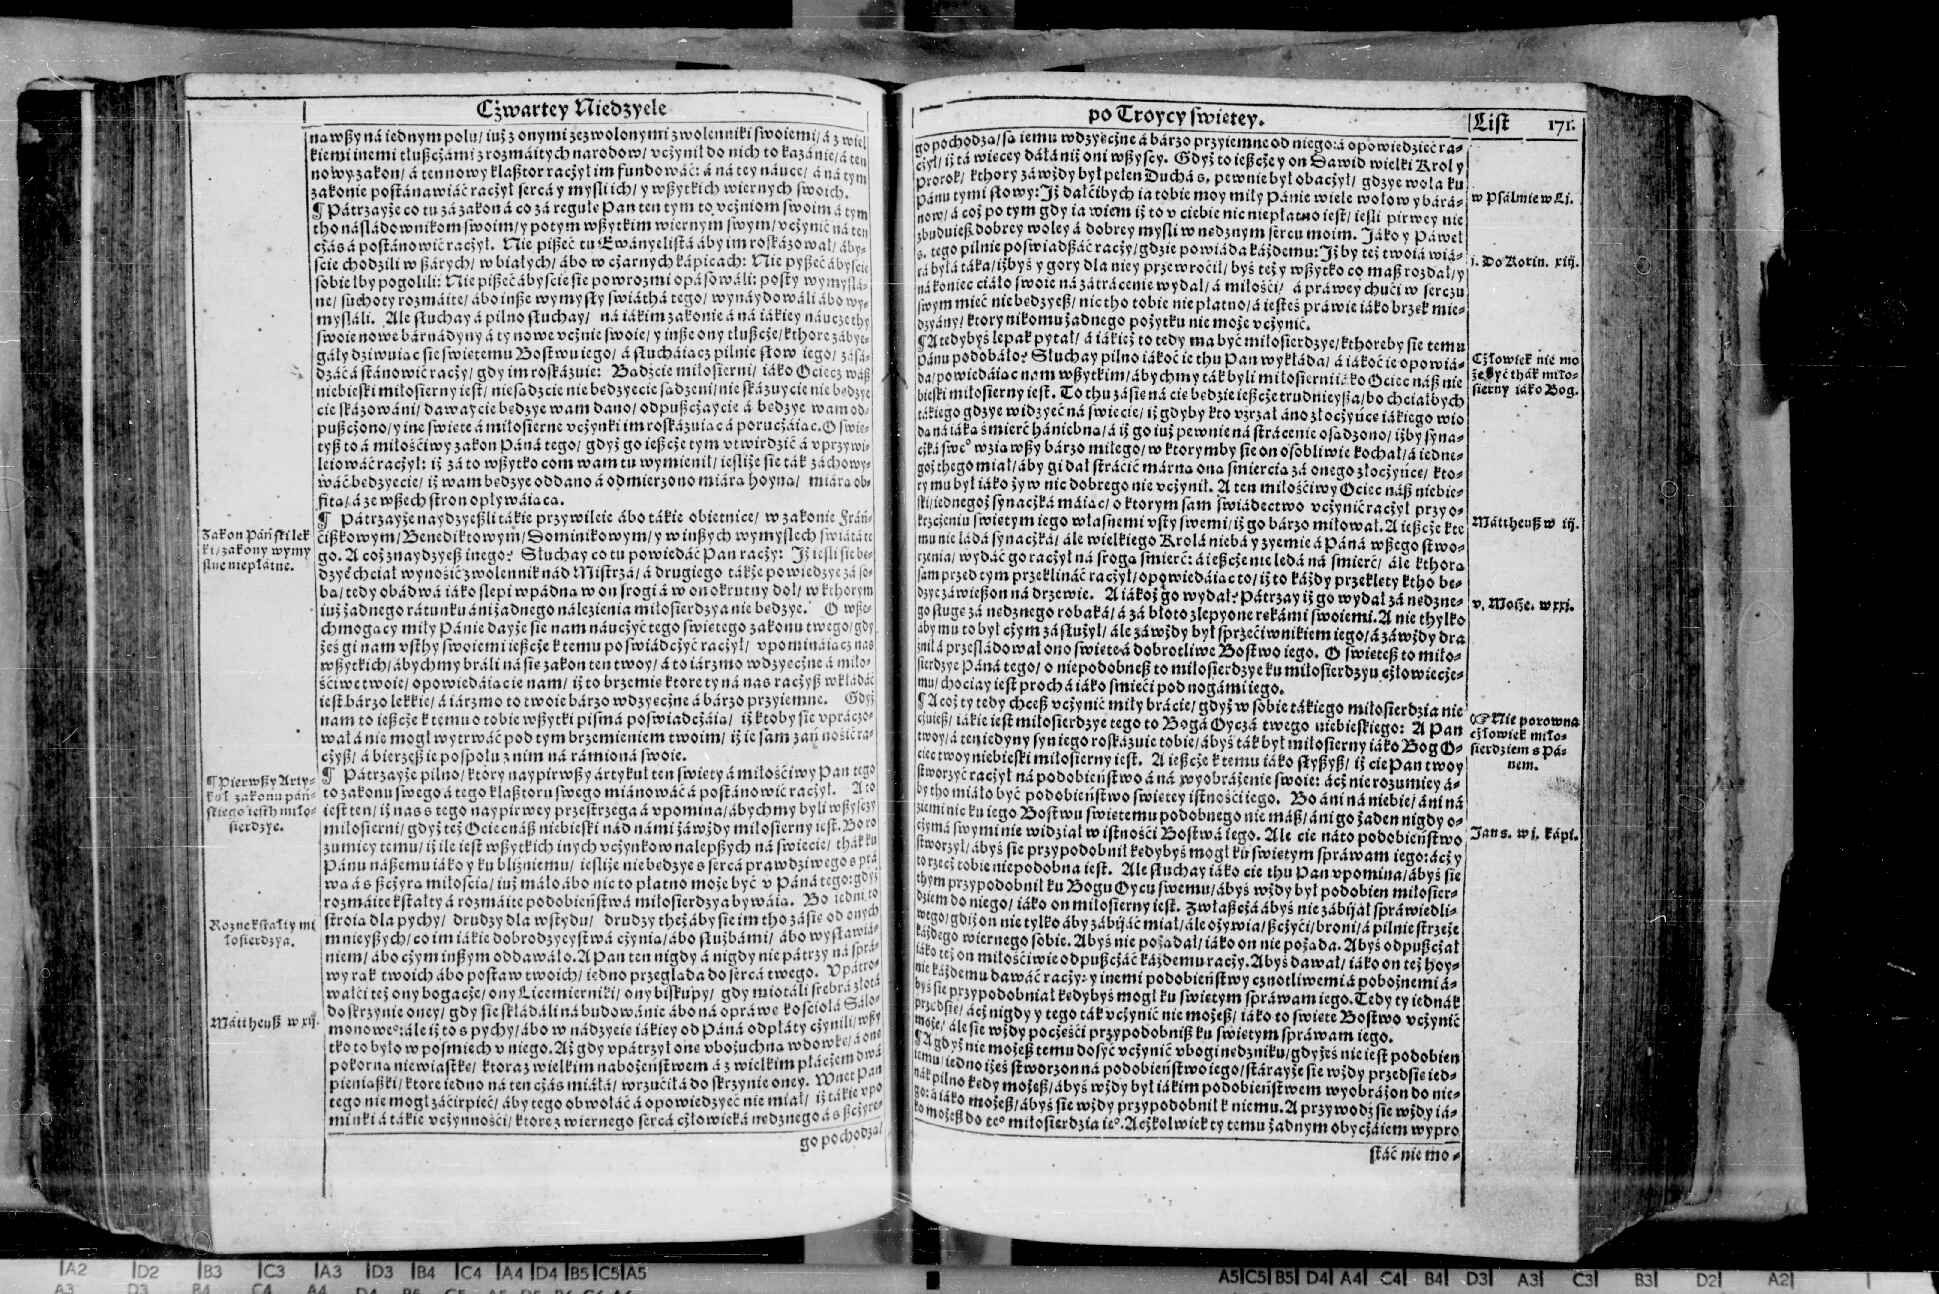 Cżwartey Niedzyele
nawßy ná iednym polu/ iuż z onymi zezwolonymi zwolenniki swoiemi/ á z wiel
kiemi inemi tlußcżámi z rozmáitych narodow/ vcżynił do nich to kazánie/ á ten
nowy zakon/ á ten nowy klaßtor racżył im fundowáć: á ná tey náuce/ á ná tym
zakonie postánawiáć racżył sercá y myśli ich/ y wßytkich wiernych swoich.
¶ Pátrzayże co tu zá zakon á co zá regułę Pan ten tym to vcżniom swoim á tym
tho násládownikom swoim/ y potym wßytkim wiernym swym/ vcżynić ná ten
cżás á postánowić racżył. Nie pißeć tu Ewányelistá áby im roskázował/ áby-
ście chodzili w ßárych/ w białych/ ábo w cżarnych kápicach: Nie pyßeć ábyście
sobie łby pogolili: Nie pißeć ábyście sie powrozmi opásowáli: posty wymyślá-
ne/ suchoty rozmáite/ ábo inße wymysły świáthá tego/ wynáydowáli ábo wy-
myślali. Ale słuchay á pilno słuchay/ ná iákim zakonie á ná iákiey náuce thy
swoie nowe bárnádyny á ty nowe vcżnie swoie/ y inße ony tlußcże/ kthore zábye-
gáły dziwuiąc sie świętemu Bostwu iego/ á słucháiącz pilnie słow iego/ zásá-
dzáć á stánowić racży/ gdy im roskázuie: Bądźcie miłosierni/ iáko Ociecz wáß
niebieski miłosierny iest/ nie sądźcie nie będzyecie sądzeni/ nie skázuycie nie będzye
cie skázowáni/ dawaycie będzye wam dano/ odpußcżaycie á będzye wam od-
pußcżono/ y ine święte á miłosierne vcżynki im roskázuiąc á porucżáiąc. O świę-
tyß to á miłościwy zakon Páná tego/ gdyż go ießcże tym vtwirdzić á vprzywi-
leiowáć racżył: iż zá to wßytko com wam tu wymienił/ iesliże sie ták záchowy-
wáć będzyecie/ iż wam będzye oddano á odmierzono miárą hoyną/ miárą ob-
fitą/ á ze wßech stron opływáiącą.
¶ Pátrzayże naydzyeßli tákie przywileie ábo tákie obietnice/ w zakonie Fráń-
cißkowym/ Benediktowym/ Dominikowym/ y w inßych wymysłech świátá te
go. A coż znaydzyeß inego? Słuchay co tu powiedáć Pan racży: Iż iesli sie bę-
dzye chciał wynośić zwolennik nád Mistrzá/ á drugiego tákże powiedzye zá so-
bą/ tedy obádwá iáko ślepi wpádną w on srogi á w on okrutny doł/ w kthorym
iuż żadnego rátunku áni żadnego nálezienia miłosierdzya nie będzye. O wße-
chmogący miły Pánie dayże sie nam náucżyć tego świętego zakonu twego/ gdy
żeś gi nam vsthy swoiemi ießcże k temu poświádcżyć racżył/ vpomináiącz nas
wßytkich/ ábychmy bráli ná się zakon ten twoy/ á to iárzmo wdzyęcżne á miło-
ściwe twoie/ opowiedáiącie nam/ iż to brzemię ktore ty ná nas racżyß wkłádáć
iest bárzo lekkie/ á iárzmo to twoie bárzo wdzyęcżne á bárzo przyiemne. Gdyż
nam to ießcże k temu o tobie wßytki pismá poświadcżáią/ iż ktoby sie vprácżo-
wał á nie mogł wytrwáć pod tym brzemieniem twoim/ iż ie sam zań nośić ra-
cżyß/ á bierzeß ie pospołu z nim ná rámioná swoie.
¶ Pátrzayże pilno/ ktory naypirwßy ártykuł ten święty á miłościwy Pan tego
to zakonu swego á tego klaßtoru swego miánowáć á postánowić racżył. A to
iest ten/ iż nas s tego naypirwey przestrzega á vpomina/ ábychmy byli wßyscy
miłosierni/ gdyż też Ociec náß niebieski nád námi záwżdy miłosierny iest. Bo ro
zumiey temu/ iż ile iest wßytkich inych vcżynkow nalepßych ná świecie/ thák ku
Pánu náßemu iáko y ku bliźniemu/ iesliże nie będzye s sercá prawdziwego s prá
wá á s ßcżyrą miłością/ iuż máło ábo nic to płátno może być v Páná tego: gdyż
rozmáite kstałty á rozmáite podobieństwá miłosierdzya bywáią. Bo iedni to
stroią dla pychy/ drudzy dla wstydu/ drudzy theż áby sie im tho zásię od onych
mnieyßych/ co im iákie dobrodzyeystwá cżynią/ ábo służbámi/ ábo wysławiá-
niem/ ábo cżym inßym oddawáło. A Pan ten nigdy á nigdy nie pátrzy ná sprá-
wy rąk twoich ábo postaw twoich/ iedno przegląda do sercá twego. Vpátro-
wałci też ony bogacże/ ony Licemierniki/ ony biskupy/ gdy miotáli srebrá złotá
do skrzynie oney/ gdy sie skłádáli ná budowánie ábo ná opráwę kościołá Sálo-
monoweº: ále iż to s pychy/ ábo w nádzyeię iákiey od Páná odpłáty cżynili/ wßy
tko to było w pośmiech v niego. Aż gdy vpátrzył onę vbożuchną wdowkę/ á onę
pokorną niewiástkę/ ktora z wielkim nabożeństwem á z wielkim płácżem dwá
pieniąßki/ ktore iedno ná ten cżás miáłá/ wrzućiłá do skrzynie oney. Wnet Pan
tego nie mogł záćirpieć/ áby tego obwołáć á opowiedzyeć nie miał/ iż tákie vpo
minki á tákie vcżynności/ ktore z wiernego sercá cżłowieká nędznego á s ßcżyre-
go pochodzą/
Zakon Páński lek
ki/ zakony wymy
ślne niepłátne.
¶ Pierwßy Arty-
kuł zakonu páń-
skiego iesth miło-
sierdzye.
Rozne kstałty mi
łosierdzya.
Mattheuß w xij.
po Troycy świętey.
List 171.
go pochodzą/ są iemu wdzyęcżne á bárzo przyiemne od niego: á opowiedzieć ra-
cżył/ iż tá więcey dáłá niż oni wßyscy. Gdyż to ießcże y on Dawid wielki Krol y
Prorok/ kthory záwżdy był pełen Duchá s. pewnie był obacżył/ gdzye wola ku
Pánu tymi słowy: Iż dałcibych ia tobie moy miły Pánie wiele wołow y bárá-
now/ á coż po tym gdy ia wiem iż to v ciebie nic niepłátno iest/ iesli pirwey nie
zbuduieß dobrey woley á dobrey myśli w nędznym sercu moim. Iáko y Páweł
s. tego pilnie poświadßáć racży/ gdzie powiáda káżdemu: Iż by też twoiá wiá-
rá byłá táka/ iżbyś y gory dla niey przewrocił/ byś też y wßytko co maß rozdał/ y
nákoniec ciáło swoie ná zátrácenie wydał/ á miłości/ á práwey chući w sercżu
swym mieć nie będzyeß/ nic tho tobie nie płátno/ á iesteś práwie iáko brzęk mie-
dzyány/ ktory nikomu żadnego pożytku nie może vcżynić.
¶ A tedybyś lepak pytał/ á iákież to tedy ma być miłosierdzye/ kthoreby sie temu
Pánu podobáło? Słuchay pilno iákoć ie thu Pan wykłáda/ á iákoć ie opowiá-
da/ powiedáiąc nam wßytkim/ ábychmy ták byli miłosierni iáko Ociec náß nie
bieski miłosierny iest. To thu zásię ná cię będzie ießcże trudnieyßa/ bo chciałbych
tákiego gdzye widzyeć ná świecie/ iż gdyby kto vzrzał áno złocżyńcę iákiego wio
dą ná iáką śmierć hániebną/ á iż go iuż pewnie ná strácenie osądzono/ iżby syna-
cżká sweº wziąwßy bárzo miłego/ w ktorymby sie on osobliwie kochał/ á iedne-
goż thego miał/ áby gi dał strácić márną oną śmiercią zá onego złocżyńcę/ kto-
ry mu był iáko żyw nic dobrego nie vcżynił. A ten miłościwy Ociec náß niebie-
ski/ iednegoż synacżká máiąc/ o ktorym sam świádectwo vcżynić racżył przy o-
krzcżeniu świętym iego własnemi vsty swemi/ iż go bárzo miłował. A ießcże kte
mu nie ládá synacżká/ ále wielkiego Krolá niebá y zyemie á Páná wßego stwo-
rzenia/ wydáć go racżył ná srogą śmierć: á ießcże nie ledá ná śmierć/ ále kthorą
sam przed tym przeklináć racżył/ opowiedáiąc to/ iż to káżdy przeklęty ktho bę-
dzye záwießon ná drzewie. A iákoż go wydał? Pátrzay iż go wydał zá nędzne-
go sługę zá nędznego robaká/ á zá błoto zlepyone rękámi swoiemi. A nie thylko
áby mu to był cżym zásłużył/ ále záwżdy był sprzeciwnikiem iego/ á záwżdy dra
żnił á prześládował ono święte á dobrotliwe Bostwo iego. O święteß to miło-
sierdzye Páná tego/ o niepodobneß to miłosierdzye ku miłosierdzyu cżłowiecże-
mu/ chociay iest proch á iáko śmieci pod nogámi iego.
¶ A coż ty tedy chceß vcżynić miły brácie/ gdyż w sobie tákiego miłosierdzia nie
cżuieß/ iákie iest miłosierdzye tego to Bogá Oyczá twego niebieskiego: A Pan
twoy/ á ten iedyny syn iego roskázuie tobie/ ábyś ták był miłosierny iáko Bog O-
ciec twoy niebieski miłosierny iest. A ießcże k temu iáko słyßyß/ iż cię Pan twoy
stworzyć racżył ná podobieństwo á ná wyobráżenie swoie: ácż nie rozumiey á-
by tho miáło być podobieństwo świętey istności iego. Bo áni ná niebie/ áni ná
ziemi nic ku iego Bostwu świętemu podobnego nie máß/ áni go żaden nigdy o-
cżymá swymi nie widział w istności Bostwá iego. Ale cię ná to podobieństwo
stworzył/ ábyś sie przypodobnił kedybyś mogł ku świętym spráwam iego: ácż y
to rzecż tobie niepodobna iest. Ale słuchay iáko cie thu Pan vpomina/ ábyś sie
thym przypodobnił ku Bogu Oycu swemu/ ábyś wżdy był podobien miłosier-
dziem do niego/ iáko on miłosierny iest. Zwłaßcżá ábyś nie zábijał spráwiedli-
wego/ gdiż on nie tylko áby zábijáć miał/ ále ożywia/ ßcżyći/ broni/ á pilnie strzeże
káżdego wiernego sobie. Abyś nie pożądał/ iáko on nie pożąda. Abyś odpußcżał
iáko też on miłościwie odpußcżáć káżdemu racży. Abyś dawał/ iáko on też hoy-
nie káżdemu dawáć racży: y inemi podobieństwy cznotliwemi á pobożnemi á-
byś sie przypodobniał kedybyś mogł ku świętym spráwam iego. Tedy ty iednák
przedsię/ ácż nigdy y tego ták vcżynić nie możeß/ iáko to święte Bostwo vcżynić
może/ ále sie wżdy pocżęści przypodobniß ku świętym spráwam iego.
¶ A gdyż nie możeß temu dosyć vcżynić vbogi nędzniku/ gdyżeś nie iest podobien
iemu/ iedno iżeś stworzon ná podobieństwo iego/ stárayże sie wżdy przedsię ied-
nák pilno kedy możeß/ ábyś wżdy był iákim podobieństwem wyobráżon do nie-
go: á iáko możeß/ ábyś sie wżdy przypodobnił k niemu. A przywodź sie wżdy iá-
ko możeß do teº miłosierdzia ieº. Acżkolwiek ty temu żadnym obycżáiem wypro
stáć nie mo-
w Psálmie w Lj.
j. Do Korin. xiij.
Cżłowiek nie mo
że być thák miło-
sierny iáko Bog.
Mattheuß w iij.
v. Moiże. w xxj.
☞ Nie porowna
cżłowiek miło-
sierdziem s Pá-
nem.
Jan s. w j. kápi.